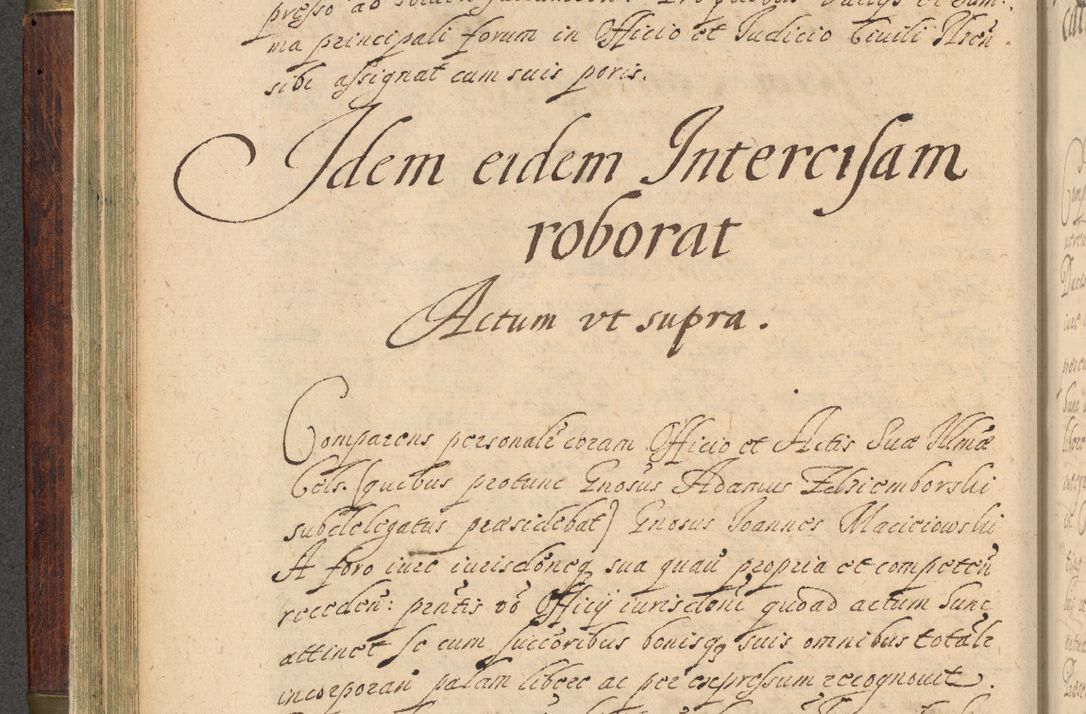 ma principali forum in Officio et Iudicio Civili Ilsen̄
sibi assignat cum suis poris.
Idem eidem Intercisam
roborat
Actum vt supra.
Comparens personalr coram Officio et Actis Suæ Illmæ
Cels. (quibus protunc Gnosus Adamus Zelsiemborski
subdelegatus præsidebat) Gnosus Ioannes Maciciowski
A foro iure iurisdoneq sua quavi propria et competen̄
receden: pn̄tis vō Officij iurisdoni quoad actum hunc
attinet se cum succoribus bonisq suis omnibus totalr
incorporan̄ palam libere ac per expressum recognovit.